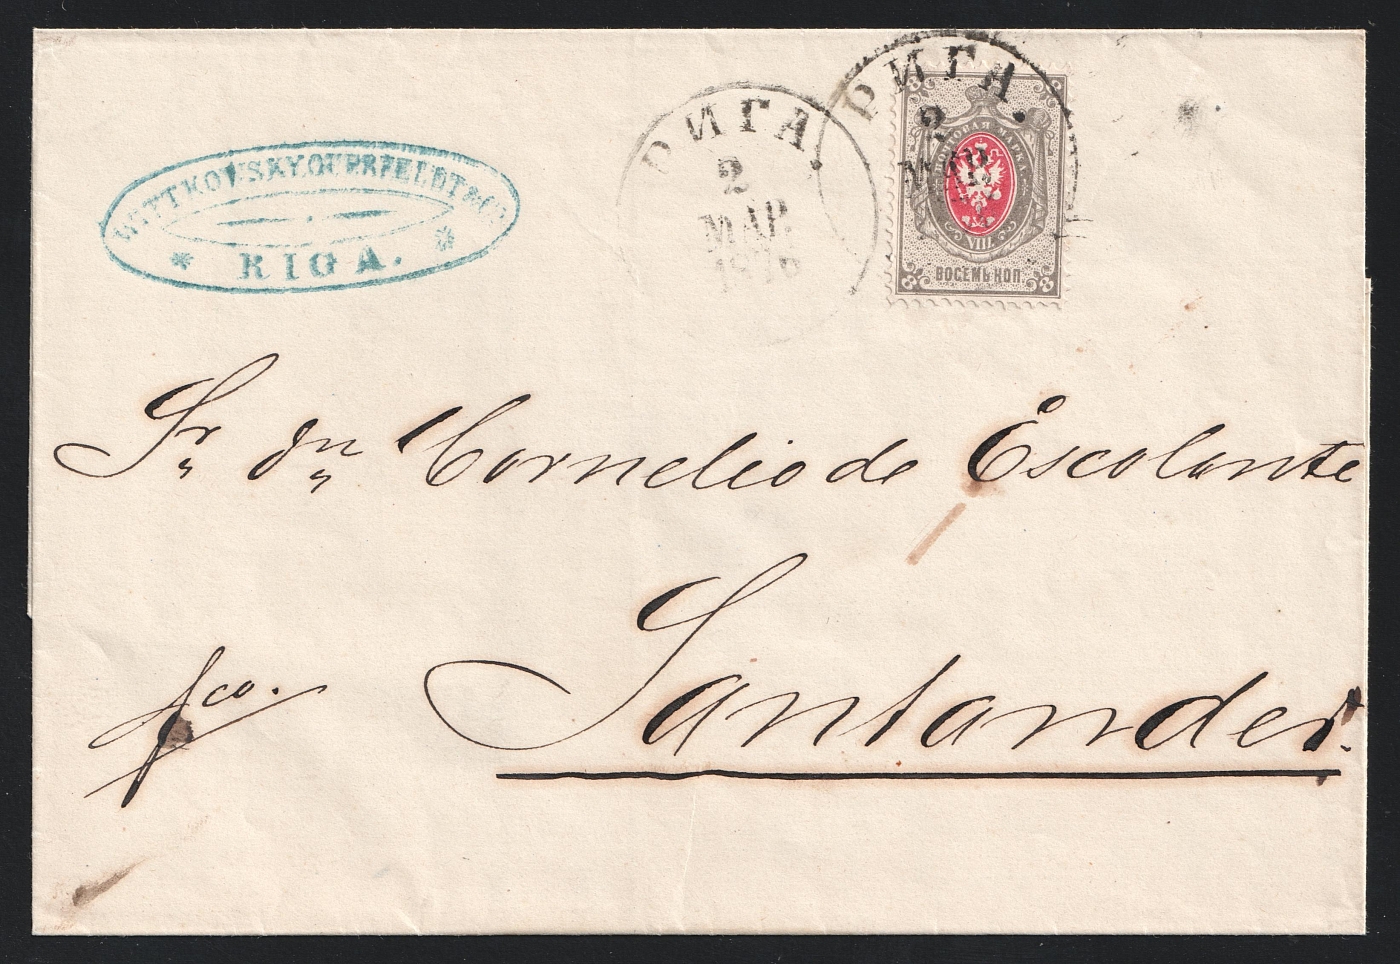 WITTKOWSKY, QUERFELDT & Co
* RIGA. *
РИГА.
2
МАР
1876
РИГА.
2
МАР.
ПОЧТОВАЯ МАРКА
VIII.
ВОСЕМЬ КОП.
8 8
Sr. dn. Cornelio de Escalante
Santander.
fco.